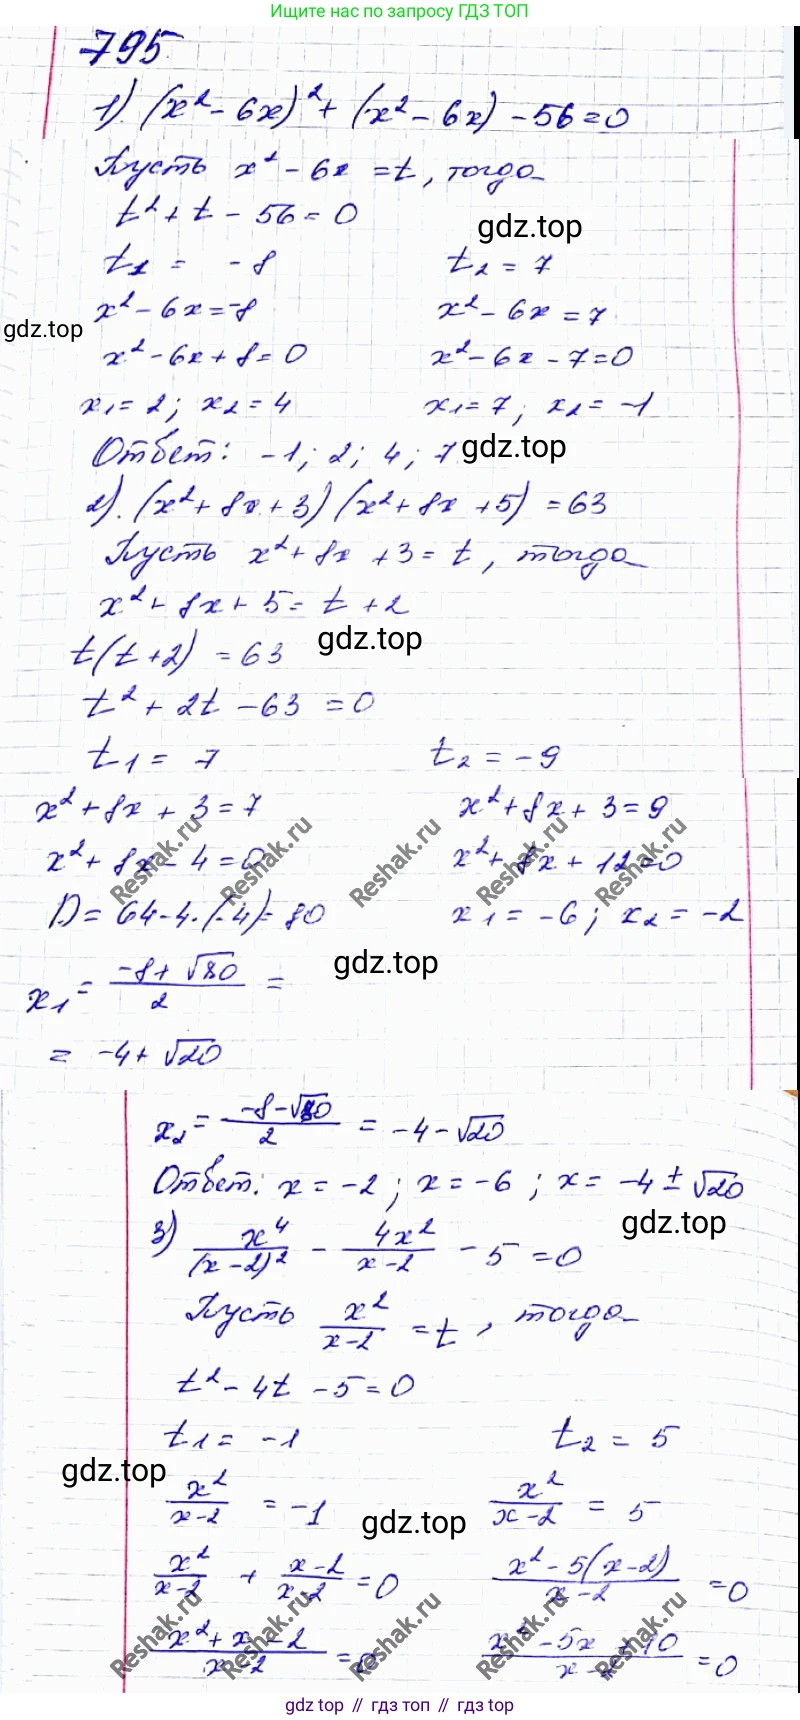 Ищите нас по запросу ГДЗ ТОП
795
1). (x² - 6x)² + (x² - 6x) - 56 = 0
Пусть x² - 6x = t, тогда
t² + t - 56 = 0
gdz.top
t₁ = -8 t₂ = 7
x² - 6x = -8 x² - 6x = 7
gdz.top
x² - 6x + 8 = 0 x² - 6x - 7 = 0
x₁ = 2; x₂ = 4 x₁ = 7; x₂ = -1
Ответ: -1; 2; 4; 7
gdz.top
2). (x² + 8x + 3)(x² + 8x + 5) = 63
Пусть x² + 8x + 3 = t, тогда
x² + 8x + 5 = t + 2
t(t+2) = 63
gdz.top
t² + 2t - 63 = 0
t₁ = 7 t₂ = -9
x² + 8x + 3 = 7 x² + 8x + 3 = 9
x² + 8x - 4 = 0 x² + 8x + 12 = 0
Reshak.ru Reshak.ru Reshak.ru Reshak.ru Reshak.ru
D = 64 - 4·(-4) = 80 x₁ = -6; x₂ = -2
x₁ = (-8 + √80)/2 =
gdz.top
= -4 + √20
x₂ = (-8 - √80)/2 = -4 - √20
Ответ: x = -2; x = -6; x = -4 ± √20
gdz.top
3) x⁴/(x-2)² - 4x²/(x-2) - 5 = 0
Пусть x²/(x-2) = t, тогда
t² - 4t - 5 = 0
t₁ = -1 t₂ = 5
gdz.top
x²/(x-2) = -1 x²/(x-2) = 5
gdz.top
x²/(x-2) + (x-2)/(x-2) = 0 (x² - 5(x-2))/(x-2) = 0
(x² + x - 2)/(x-2) = 0 (x² - 5x + 10)/(x-2) = 0
Reshak.ru Reshak.ru Reshak.ru Reshak.ru Reshak.ru
gdz top // гдз топ // gdz top